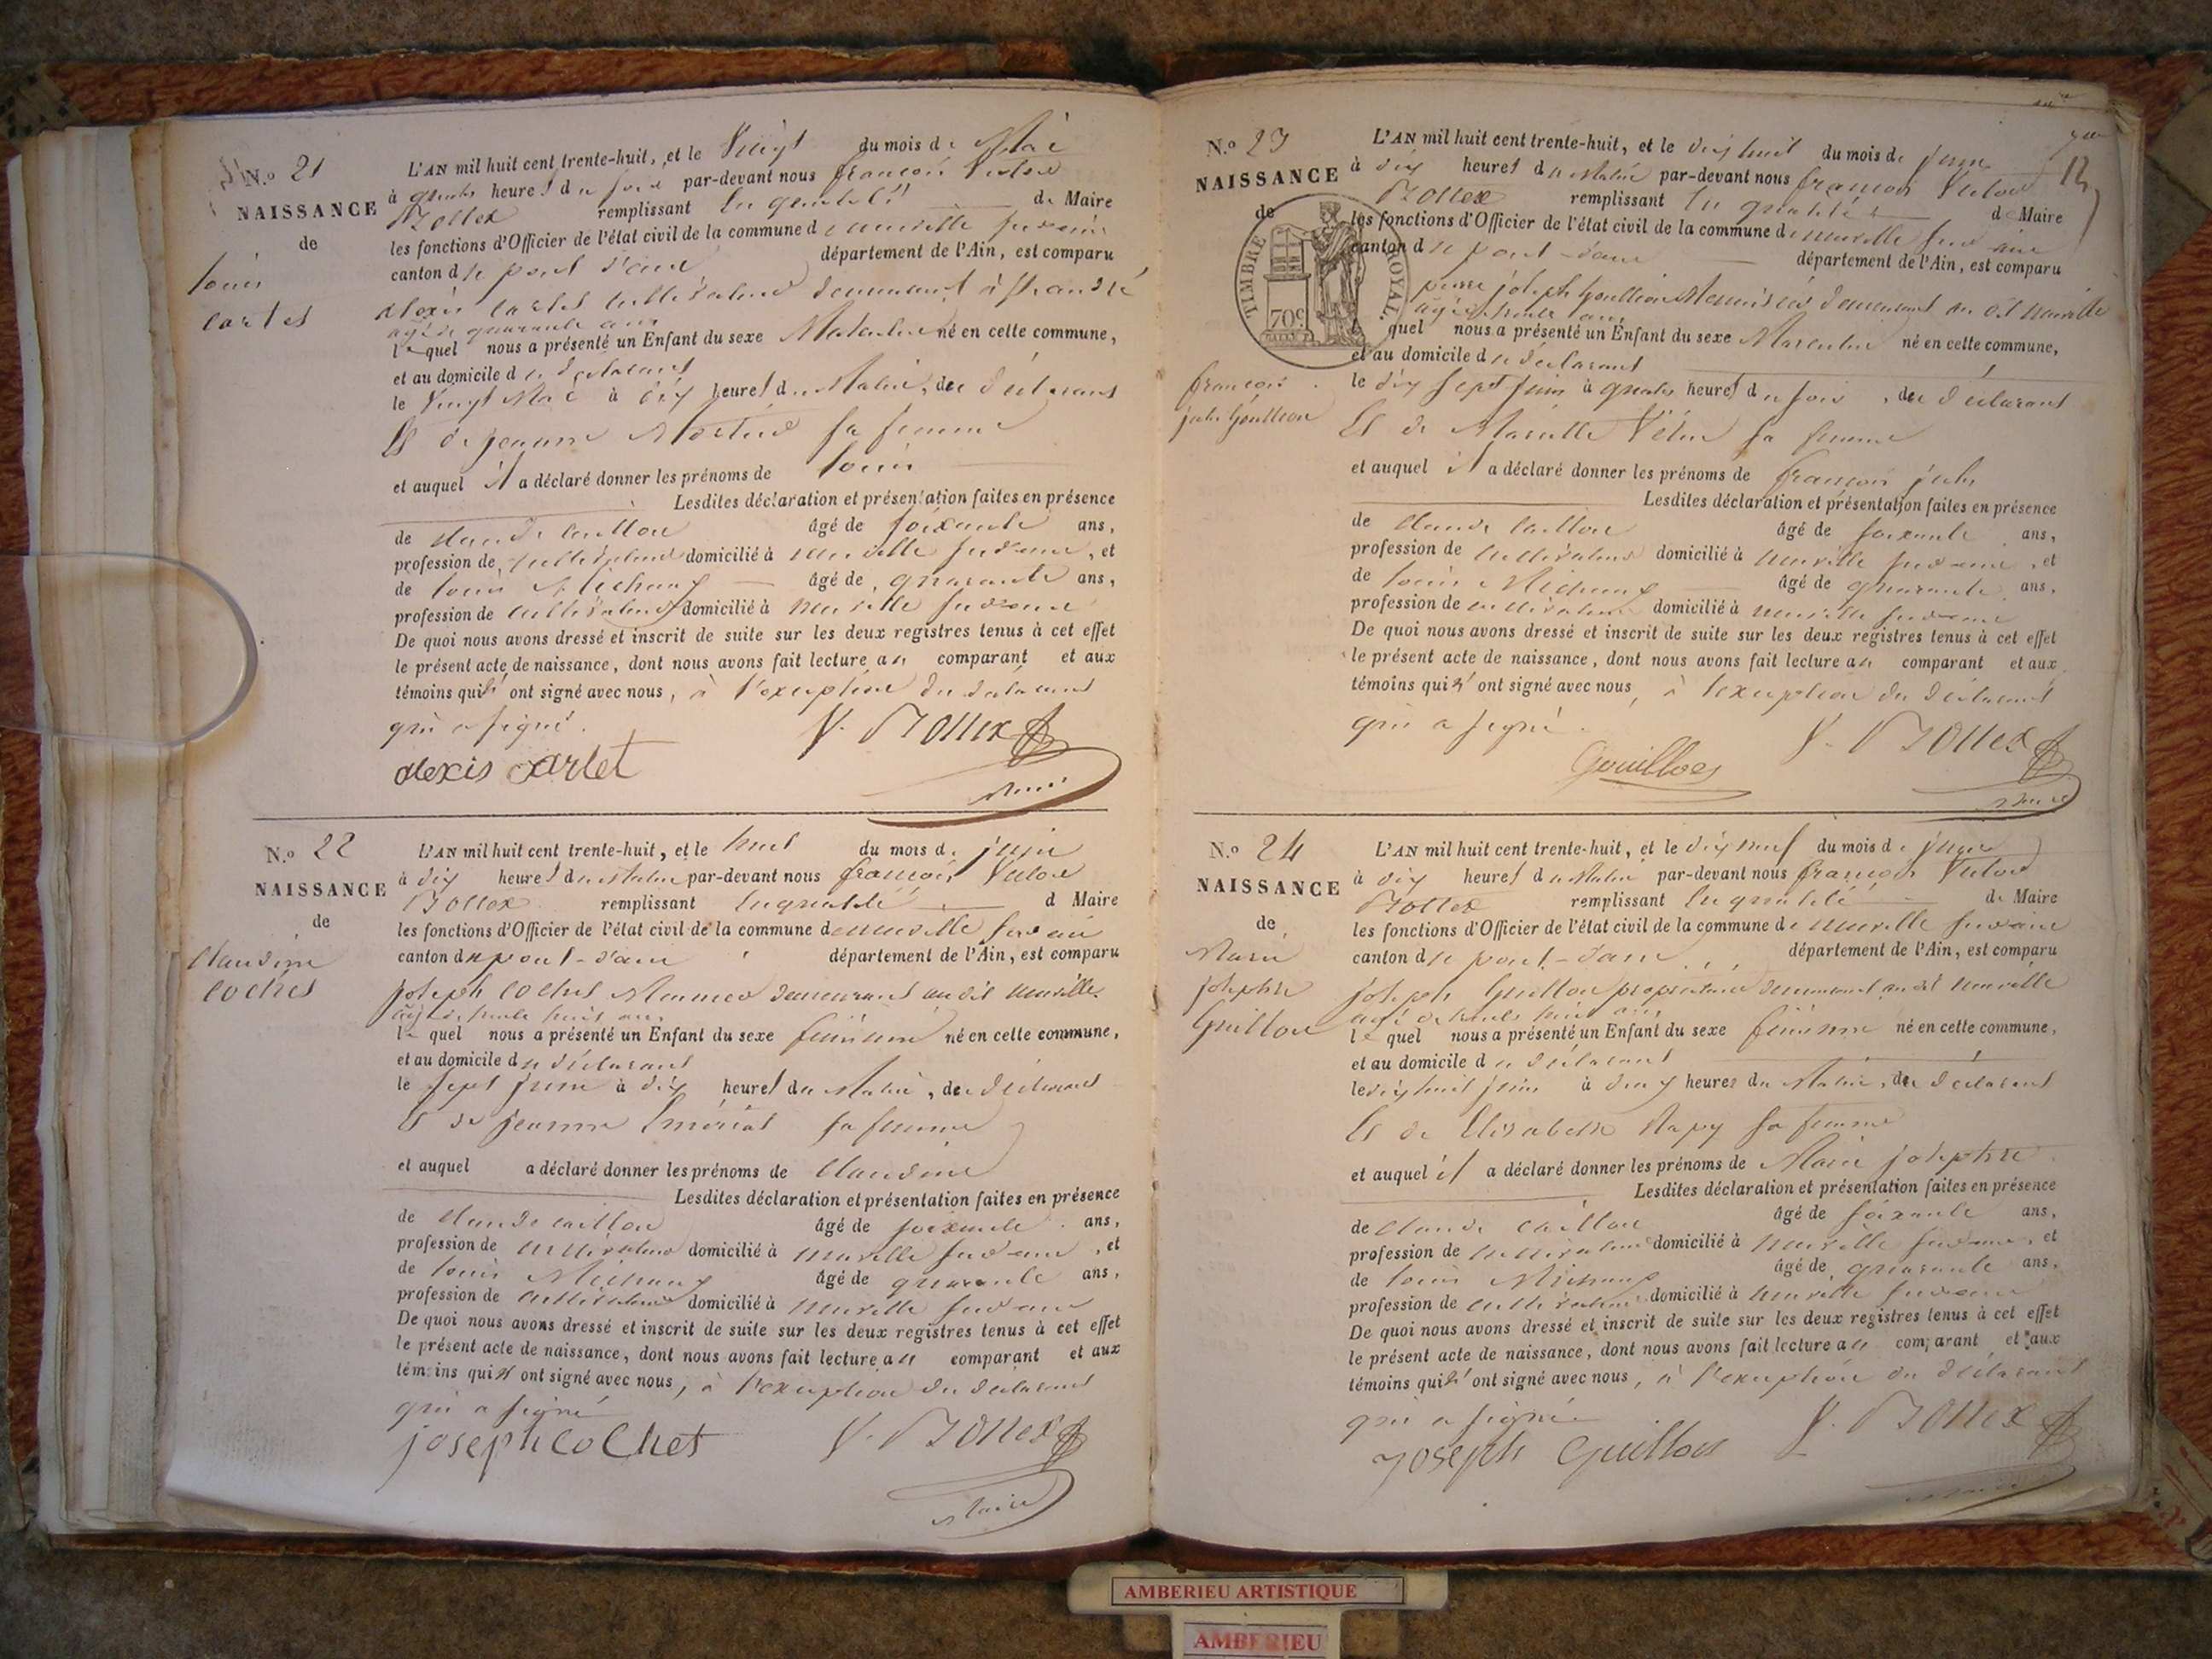 N.o 21
NAISSANCE
de
louis
Cartet
L'AN mil huit cent trente-huit, et le Vingt du mois de Mai
à quatre heures du soir par-devant nous françois Victor
Bollex remplissant en qualité de Maire
les fonctions d'Officier de l'état civil de la commune de neuville sur ain
canton de pont d'ain département de l'Ain, est comparu
alexis Cartet cultivateur demeurant à
agé de quarante ans
lequel nous a présenté un Enfant du sexe Masculin né en cette commune,
et au domicile du déclarant
le Vingt Mai à dix heures du Matin, de déclarant
Et de jeanne sa femme
et auquel il a déclaré donner les prénoms de louis
Lesdites déclaration et présentation faites en présence
de claude caillon âgé de soixante ans,
profession de cultivateur domicilié à neuville sur ain, et
de louis Michaux âgé de quarante ans,
profession de cultivateur domicilié à neuville sur ain
De quoi nous avons dressé et inscrit de suite sur les deux registres tenus à cet effet
le présent acte de naissance, dont nous avons fait lecture au comparant et aux
témoins qui n'ont signé avec nous, à l'exception du déclarant
qui a signé.
alexis Cartet V. Bollex
Maire
N.o 22
NAISSANCE
de
Claudine
Cochet
L'AN mil huit cent trente-huit, et le huit du mois de juin
à dix heures du Matin par-devant nous françois Victor
Bollex remplissant en qualité d Maire
les fonctions d'Officier de l'état civil de la commune de neuville sur ain
canton de pont-d'ain département de l'Ain, est comparu
joseph Cochet demeurant au dit neuville
agé de trente huit ans
le quel nous a présenté un Enfant du sexe féminin né en cette commune,
et au domicile du déclarant
le sept juin à dix heures du Matin, de déclarant
Et de jeanne sa femme
et auquel a déclaré donner les prénoms de Claudine
Lesdites déclaration et présentation faites en présence
de claude caillon âgé de soixante ans,
profession de cultivateur domicilié à neuville sur ain, et
de louis Michaux âgé de quarante ans,
profession de cultivateur domicilié à neuville sur ain
De quoi nous avons dressé et inscrit de suite sur les deux registres tenus à cet effet
le présent acte de naissance, dont nous avons fait lecture au comparant et aux
témoins qui n'ont signé avec nous, à l'exception du déclarant
qui a signé
joseph Cochet V. Bollex
Maire
12
N.o 23
NAISSANCE
de
françois
jules Gouillon
TIMBRE ROYAL.
70c
L'AN mil huit cent trente-huit, et le dix huit du mois de juin
à dix heures du Matin par-devant nous françois Victor
Bollex remplissant en qualité de Maire
les fonctions d'Officier de l'état civil de la commune de neuville sur ain
canton de pont-d'ain département de l'Ain, est comparu
pierre joseph Gouillon Menuisier demeurant au dit neuville
agé de trente ans
l quel nous a présenté un Enfant du sexe Masculin né en cette commune,
et au domicile du déclarant
le dix sept juin à quatre heures du soir, de déclarant
Et de sa femme
et auquel il a déclaré donner les prénoms de françois jules
Lesdites déclaration et présentation faites en présence
de claude caillon âgé de soixante ans,
profession de cultivateur domicilié à neuville sur ain, et
de louis Michaux âgé de quarante ans,
profession de cultivateur domicilié à neuville sur ain
De quoi nous avons dressé et inscrit de suite sur les deux registres tenus à cet effet
le présent acte de naissance, dont nous avons fait lecture au comparant et aux
témoins qui n'ont signé avec nous, à l'exception du déclarant
qui a signé.
Gouillon V. Bollex
Maire
N.o 24
NAISSANCE
de
Marie
josephte
Guillon
L'AN mil huit cent trente-huit, et le dix neuf du mois de juin
à dix heures du Matin par-devant nous françois Victor
Bollex remplissant en qualité de Maire
les fonctions d'Officier de l'état civil de la commune de neuville sur ain
canton de pont-d'ain département de l'Ain, est comparu
joseph Guillon propriétaire demeurant au dit neuville
agé de trente huit ans
le quel nous a présenté un Enfant du sexe féminin né en cette commune,
et au domicile du déclarant
le dix huit juin à heures du Matin, de déclarant
Et de Elisabeth sa femme
et auquel il a déclaré donner les prénoms de Marie josephte
Lesdites déclaration et présentation faites en présence
de claude caillon âgé de soixante ans,
profession de cultivateur domicilié à neuville sur ain, et
de louis Michaux âgé de quarante ans,
profession de cultivateur domicilié à neuville sur ain
De quoi nous avons dressé et inscrit de suite sur les deux registres tenus à cet effet
le présent acte de naissance, dont nous avons fait lecture au comparant et aux
témoins qui n'ont signé avec nous, à l'exception du déclarant
qui a signé
Joseph Guillon V. Bollex
AMBERIEU ARTISTIQUE
AMBERIEU